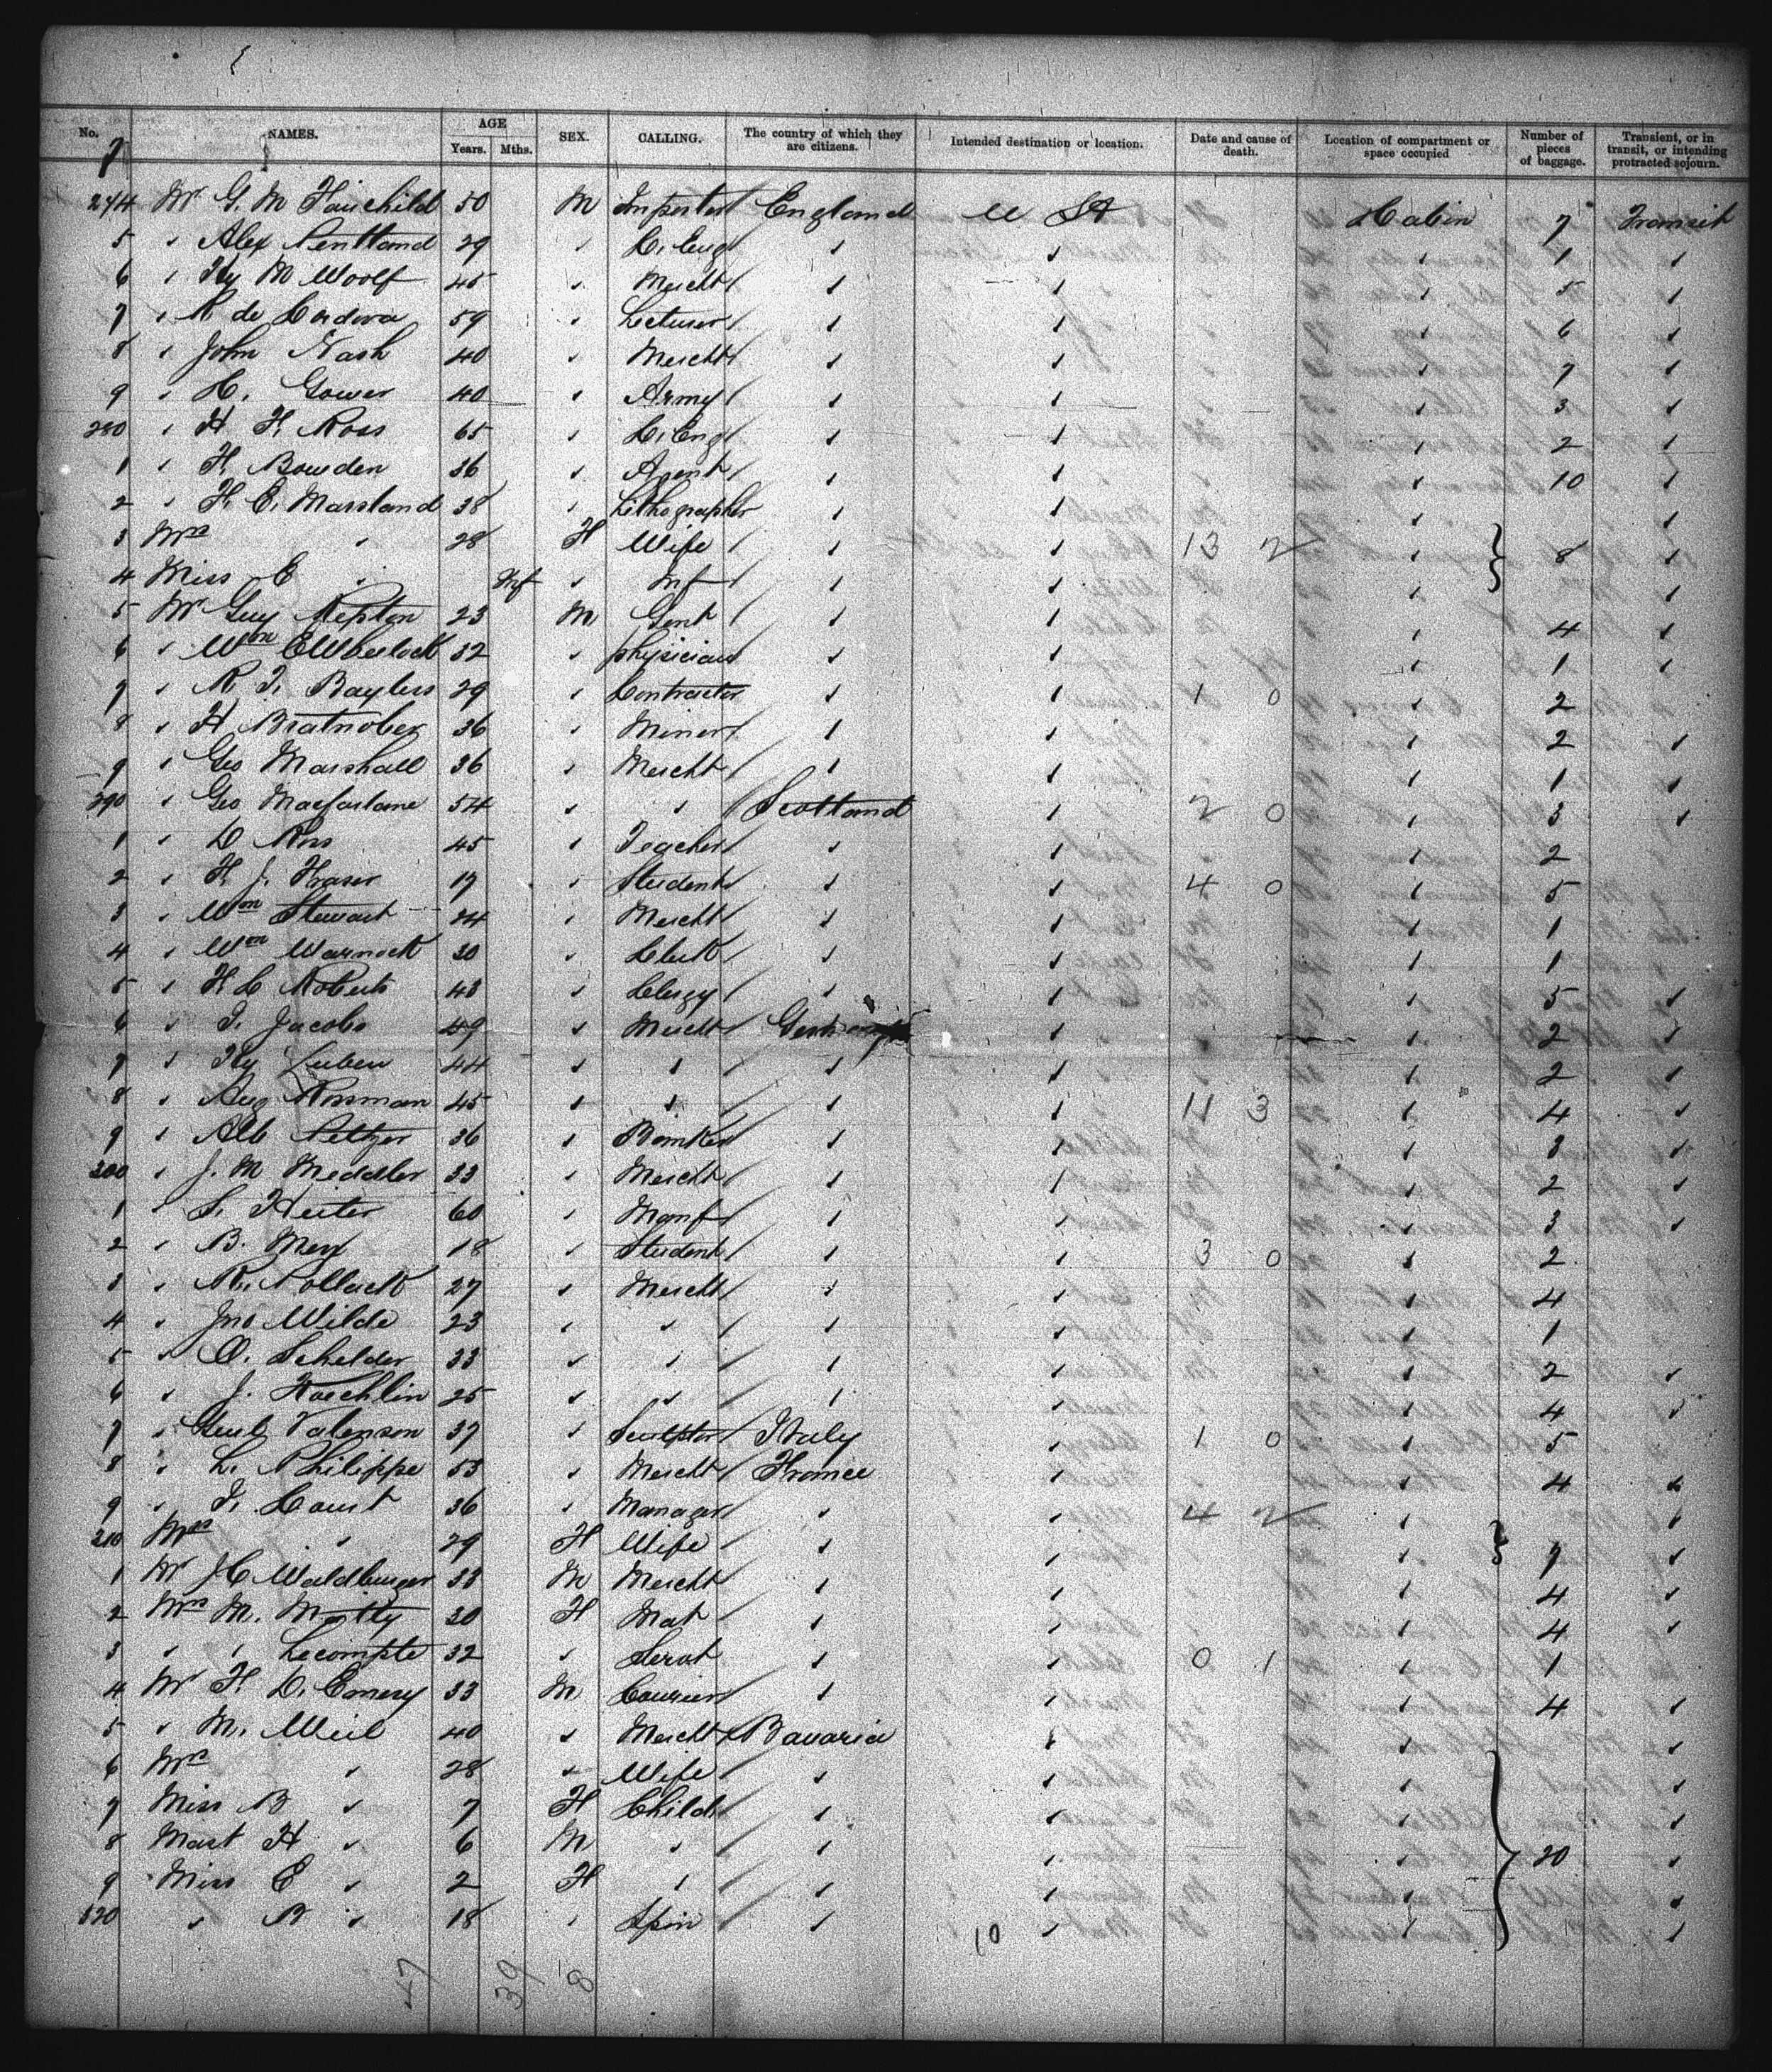 No. NAMES. AGE Years. Mths. SEX. CALLING. The country of which they are citizens. Intended destination or location. Date and cause of death. Location of compartment or space occupied Number of pieces of baggage. Transient, or in transit, or intending protracted sojourn.
7
274 Mr G. M Fairchild 50 M Importer England U St Cabin 7 Transit
5 " Alex Pentland 29 " C. Eng " " " 1 "
6 " Hy M Woolf 45 " Mercht " " " 5 "
7 " R de Cordova 59 " Lecturer " " " 6 "
8 " John Nash 40 " Mercht " " " 7 "
9 " H. Gower 40 " Army " " " 3 "
280 " H F. Ross 65 " C. Eng " " " 2 "
1 " F. Bowden 36 " Agent " " " 10 "
2 " F. E. Marsland 38 " Lithographer " " " "
3 Mrs " 28 F Wife " " 13 2 " 8 "
4 Miss E " Inf " Inf " " " "
5 Mr Guy Repton 23 M Gent " " " 4 "
6 " Wm E Wheelock 32 " Physician " " " 1 "
7 " R. T. Bayless 29 " Contractor " " 1 0 " 2
8 " H Bratnober 36 " Miner " " " 2 "
9 " Geo Marshall 36 " Mercht " " " 1 "
290 " Geo Macfarlane 54 " " Scotland " 2 0 " 3 "
1 " D Ross 45 " Teacher " " " 2
2 " F. J. Fraser 19 " Student " " 4 0 " 5
3 " Wm Stewart 24 " Mercht " " " 1
4 " Wm Warnock 30 " Clerk " " " 1
5 " F. C Roberts 43 " Clergy " " " 5 "
6 " I. Jacobs 49 " Mercht Germany " " 2 "
7 " Hy Luben 44 " " " " " 2 "
8 " Aug Rossman 45 " " " " 11 3 " 4 "
9 " Alb Peltzer 36 " Banker " " " 3 "
300 " J. M Meddler 33 " Mercht " " " 2 "
1 " S. Heiter 60 " Manf " " " 3 "
2 " B. Mey 18 " Student " " 3 0 " 2
3 " R. Pollack 27 " Mercht " " " 4
4 " Jno Wilde 23 " " " " " 1
5 " O. Schelder 33 " " " " " 2 "
6 " J. Hoechlin 25 " " " " " 4 "
7 " Valenson 37 " Sculptor Italy " 1 0 " 5
8 " L. Philippe 53 " Mercht France " " 4 "
9 " T. Court 36 " Manager " " 4 2 " "
310 Mrs " 29 F Wife " " " 7 "
1 Mr J C Waldburger 33 M Mercht " " " 4 "
2 Mrs M. Motty 30 F Mat " " " 4 "
3 " " Lecompte 32 " Servt " " 0 1 " 1
4 Mr F. D. Emery 33 M Courier " " " 4 "
5 " M. Weil 40 " Mercht Bavaria " " "
6 Mrs " 28 " Wife " " "
7 Miss B " 7 F Child " " "
8 Mast H " 6 M " " " " 20 "
9 Miss E " 2 F " " " " "
320 " B " 18 " Spin " " " "
10
47 39 8